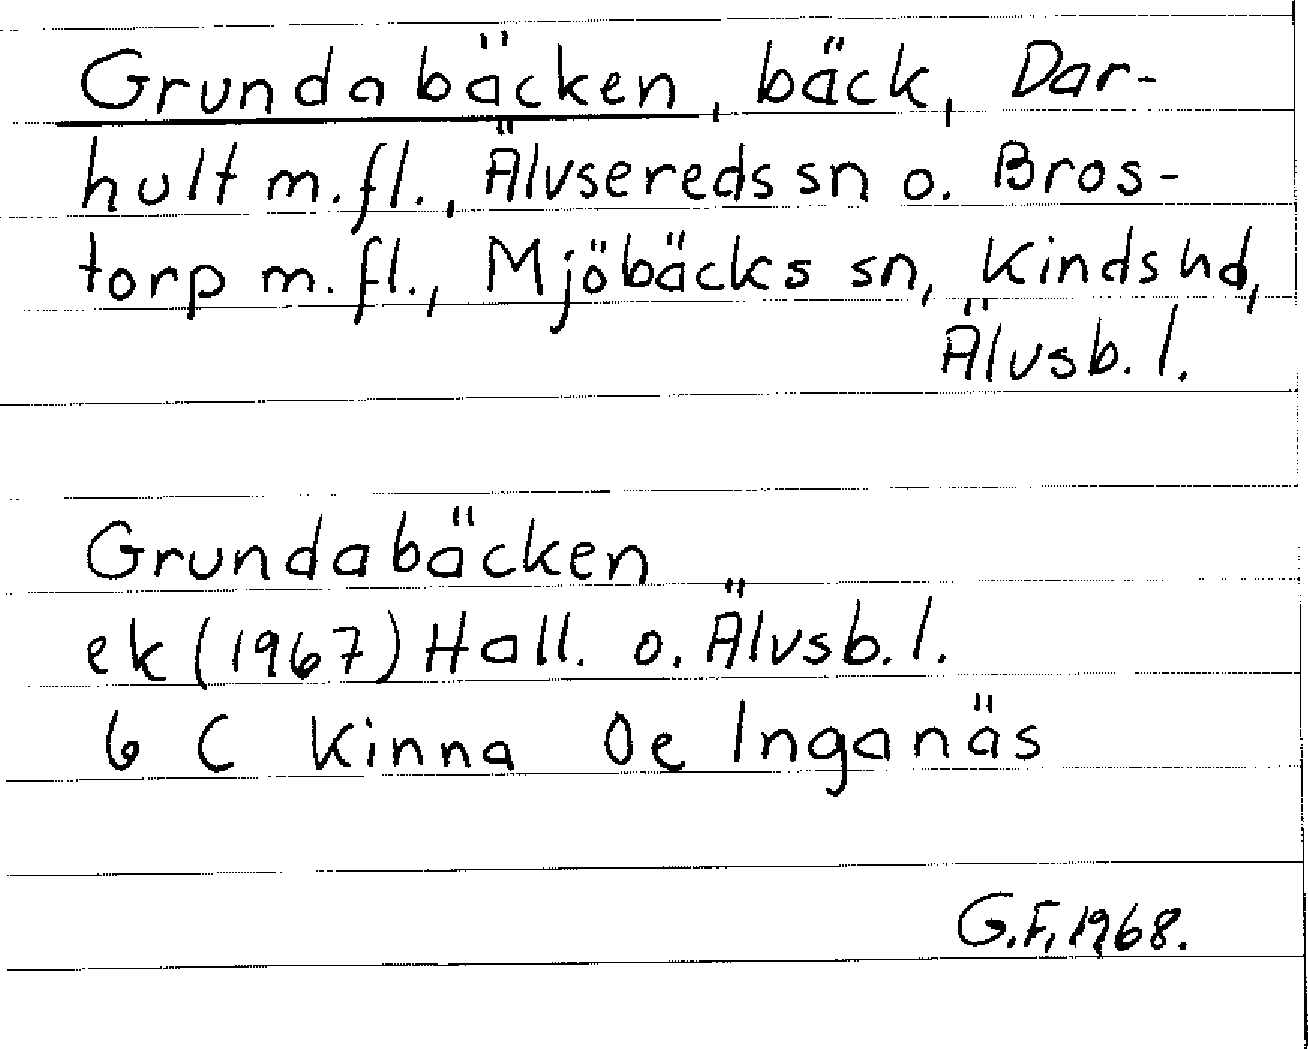 Grundabäcken, bäck, Dar-
hult m.fl., Älvsereds sn o. Bros-
torp m.fl., Mjöbäcks sn, Kinds hd,
Älvsb. l.
Grundabäcken
ek (1967) Hall. o. Älvsb. l.
6 C Kinna 0e Inganäs
G.F. 1968.